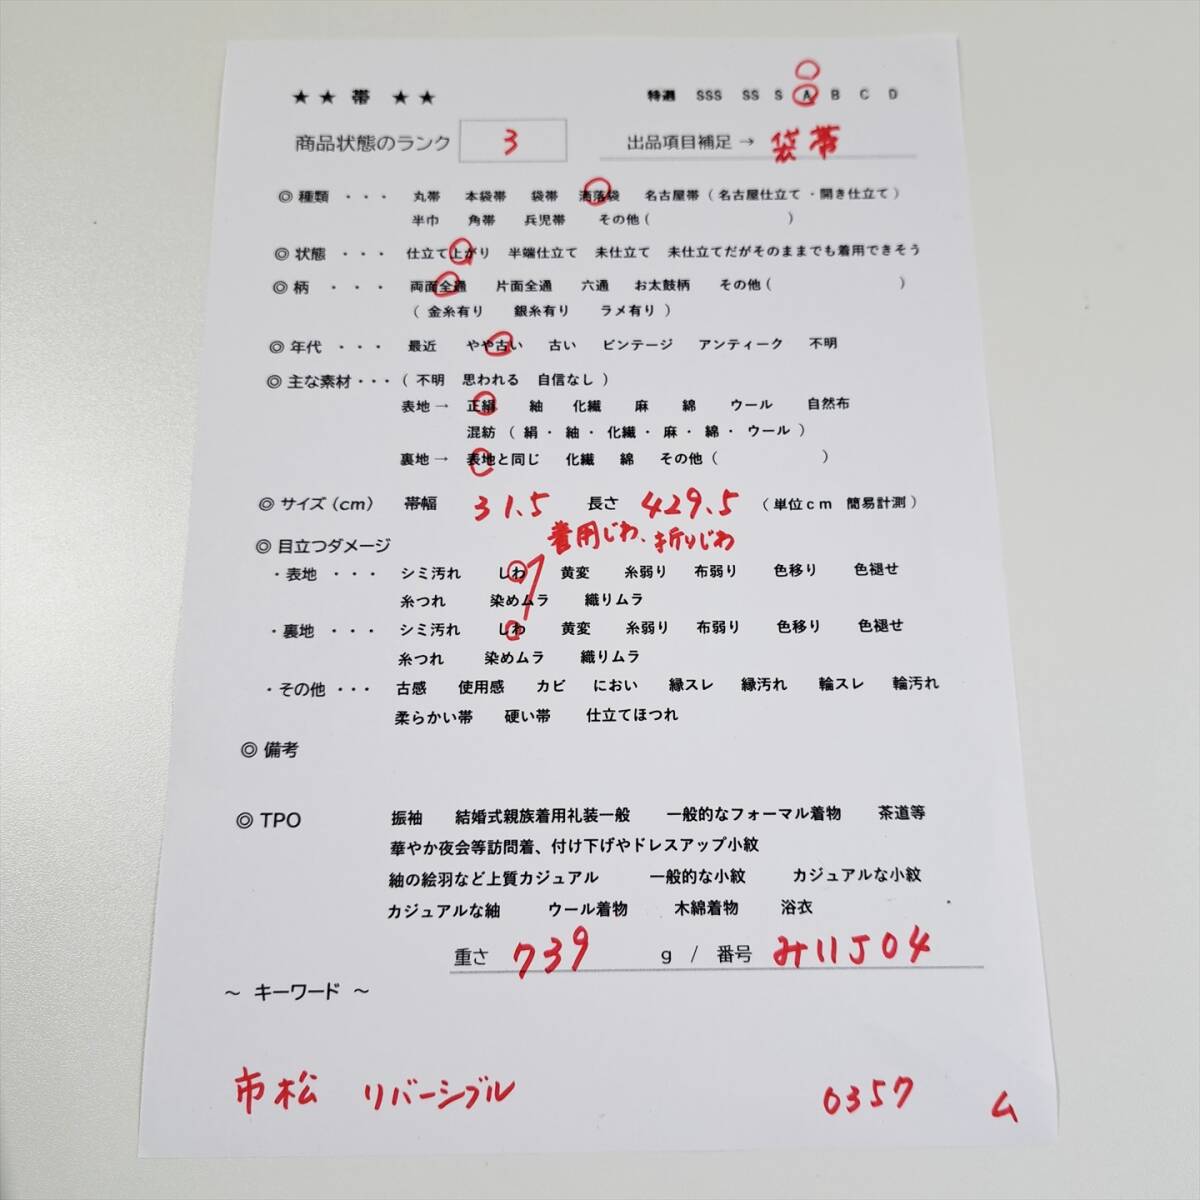 ★ ★ 帯 ★ ★ 特選 SSS SS S A B C D
商品状態のランク 3 出品項目補足 → 袋帯
◎ 種類 ・・・ 丸帯 本袋帯 袋帯 洒落袋 名古屋帯 ( 名古屋仕立て ・ 開き仕立て )
半巾 角帯 兵児帯 その他 ( )
◎ 状態 ・・・ 仕立て上がり 半端仕立て 未仕立て 未仕立てだがそのままでも着用できそう
◎ 柄 ・・・ 両面全通 片面全通 六通 お太鼓柄 その他 ( )
( 金糸有り 銀糸有り ラメ有り )
◎ 年代 ・・・ 最近 やや古い 古い ビンテージ アンティーク 不明
◎ 主な素材 ・・・ ( 不明 思われる 自信なし )
表地 → 正絹 紬 化繊 麻 綿 ウール 自然布
混紡 ( 絹 ・ 紬 ・ 化繊 ・ 麻 ・ 綿 ・ ウール )
裏地 → 表地と同じ 化繊 綿 その他 ( )
◎ サイズ (cm) 帯幅 31.5 長さ 429.5 ( 単位cm 簡易計測 )
着用じわ、折りじわ
◎ 目立つダメージ
・表地 ・・・ シミ汚れ しわ 黄変 糸弱り 布弱り 色移り 色褪せ
糸つれ 染めムラ 織りムラ
・裏地 ・・・ シミ汚れ しわ 黄変 糸弱り 布弱り 色移り 色褪せ
糸つれ 染めムラ 織りムラ
・その他 ・・・ 古感 使用感 カビ におい 縁スレ 縁汚れ 輪スレ 輪汚れ
柔らかい帯 硬い帯 仕立てほつれ
◎ 備考
◎ TPO 振袖 結婚式親族着用礼装一般 一般的なフォーマル着物 茶道等
華やか夜会等訪問着、付け下げやドレスアップ小紋
紬の絵羽など上質カジュアル 一般的な小紋 カジュアルな小紋
カジュアルな紬 ウール着物 木綿着物 浴衣
重さ 739 g / 番号 み11J04
～ キーワード ～
市松 リバーシブル 0357 ム